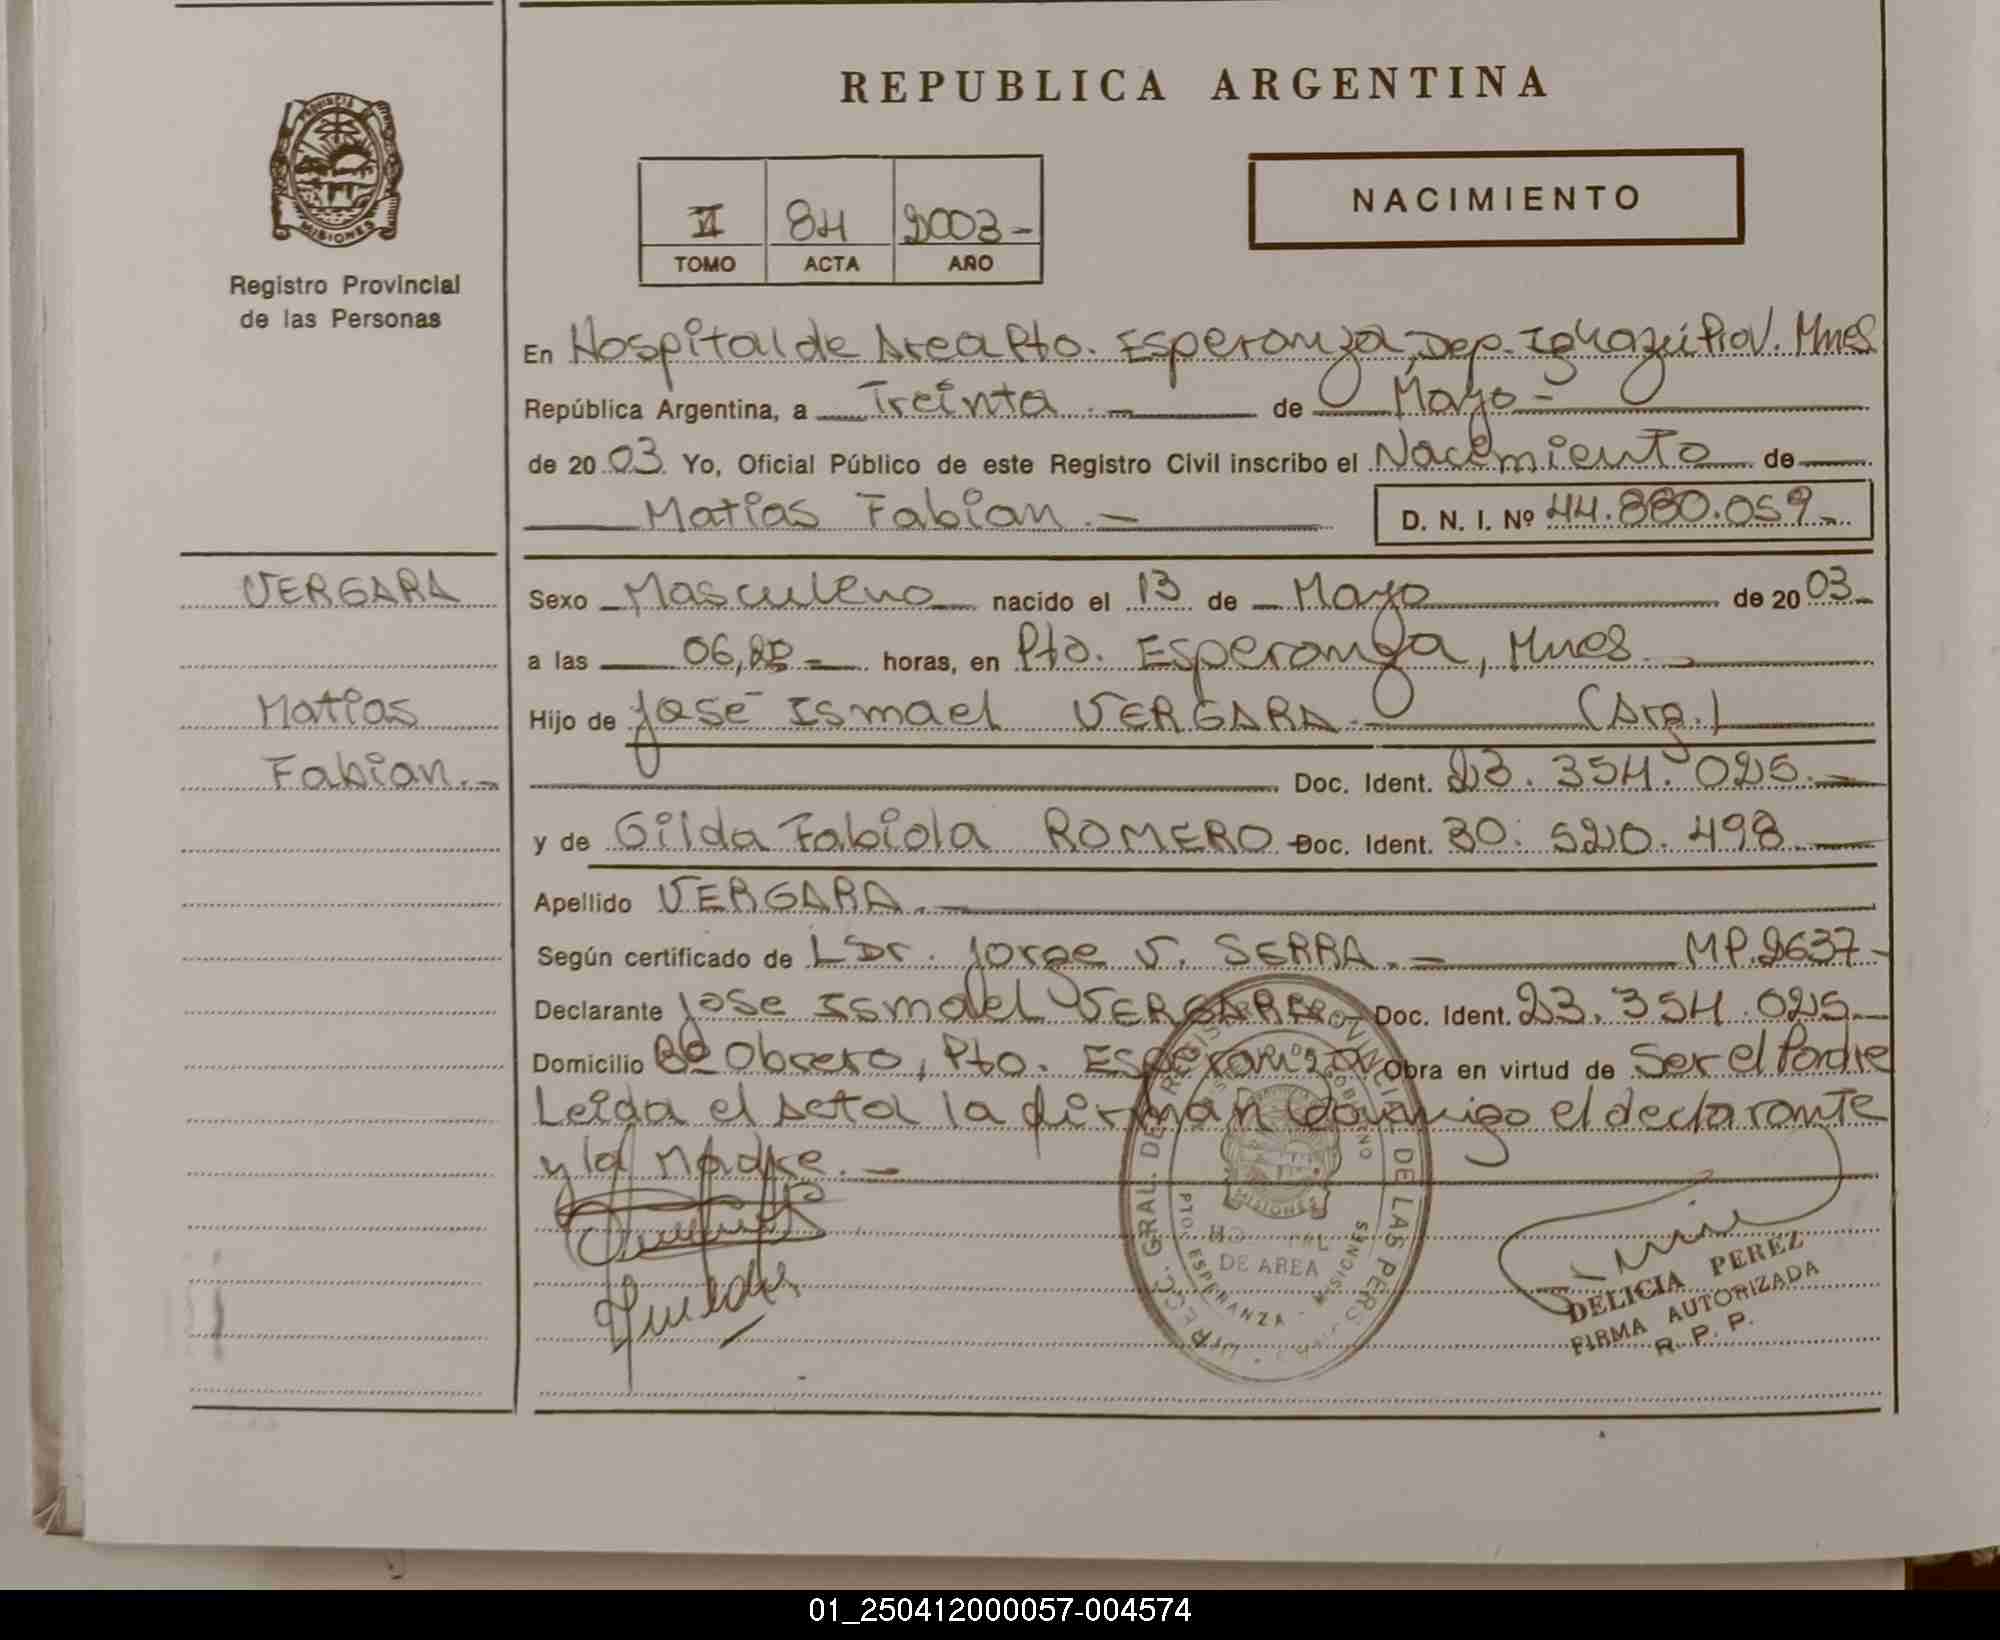 REPUBLICA ARGENTINA
NACIMIENTO
PROVINCIA
MISIONES
Registro Provincial
de las Personas
84 2003-
TOMO ACTA AÑO
En Hospital de Area Pto. Esperanza, Dep. Iguazú Prov. Mnes
República Argentina, a Treinta.- de Mayo-
de 2003 Yo, Oficial Público de este Registro Civil inscribo el Nacimiento de
Matias Fabian.-
D. N. I. Nº 44.880.059-
VERGARA
Matias
Fabian.-
Sexo Masculino nacido el 13 de Mayo de 2003-
a las horas, en Pto. Esperanza, Mnes.-
Hijo de José Ismael VERGARA.- (Arg.)
Doc. Ident. 23.354.025.-
y de Gilda Fabiola ROMERO Doc. Ident. 30.520.498.-
Apellido VERGARA.-
Según certificado de Dr. Jorge V. SERRA.- MP.2637-
Declarante Jose Ismael VERGARA.- Doc. Ident. 23.354.025-
Domicilio Bº Obrero, Pto. Esperanza Obra en virtud de Ser el Padre
Leida el Acta la firman conmigo el declarante
y la Madre.-
GRAL. DE REGISTRO PROVINCIAL DE LAS PERS
MISIONES
DE AREA
PTO. ESPERANZA - MISIONES
DELICIA PEREZ
FIRMA AUTORIZADA
R. P. P.
01_250412000057-004574